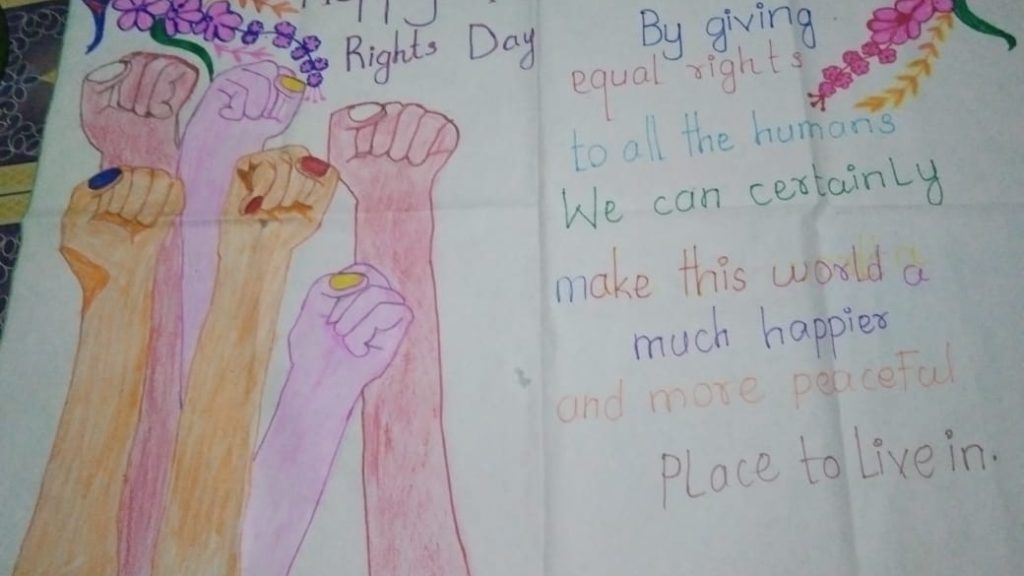 Rights Day
By giving
equal rights
to all the humans
We can certainLy
make this world a
much happier
and more peaceful
PLace to Live in.